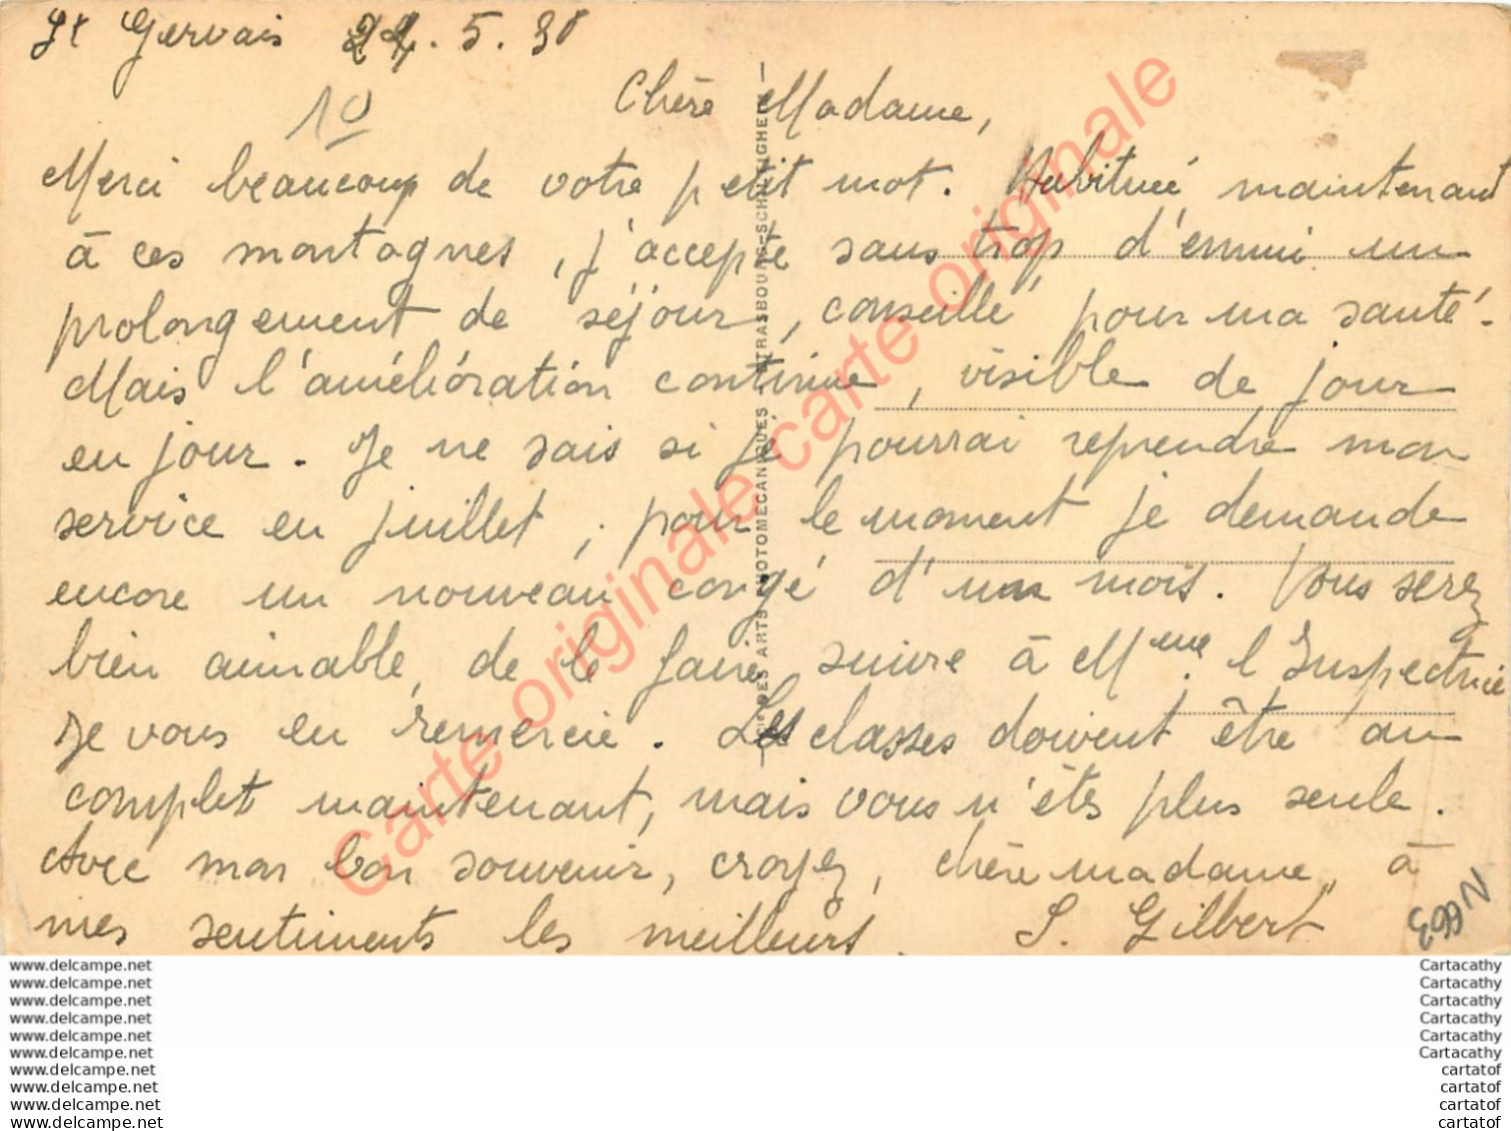 St Gervais 22.5.38
10
Chère Madame,
Merci beaucoup de votre petit mot. Habituée maintenant
à ces montagnes, j'accepte sans trop d'ennui un
prolongement de séjour, conseillé pour ma santé.
Mais l'amélioration continue, visible de jour
en jour. Je ne sais si je pourrai reprendre mon
service en juillet, pour le moment je demande
encore un nouveau congé d'un mois. Vous serez
bien aimable de le faire suivre à Mme l'Inspectrice
Je vous en remercie. Les classes doivent être au
complet maintenant, mais vous n'êtes plus seule.
Avec mon bon souvenir, croyez, chère madame, à
mes sentiments les meilleurs. S. Gilbert
N 663
DES ARTS PHOTOMECANIQUES - STRASBOURG-SCHILTIGHEIM
Carte originale carte originale
www.delcampe.net
www.delcampe.net
www.delcampe.net
www.delcampe.net
www.delcampe.net
www.delcampe.net
www.delcampe.net
www.delcampe.net
www.delcampe.net
www.delcampe.net
Cartacathy
Cartacathy
Cartacathy
Cartacathy
Cartacathy
Cartacathy
cartatof
cartatof
cartatof
cartatof